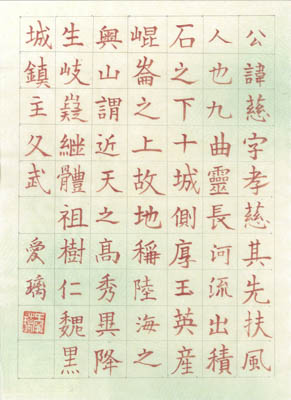 公諱慈字孝慈其先扶風
人也九曲靈長河流出積
石之下十城側厚玉英産
崐崙之上故地稱陸海之
奥山謂近天之高秀異降
生岐嶷繼體祖樹仁魏黒
城鎮主父武 愛璃